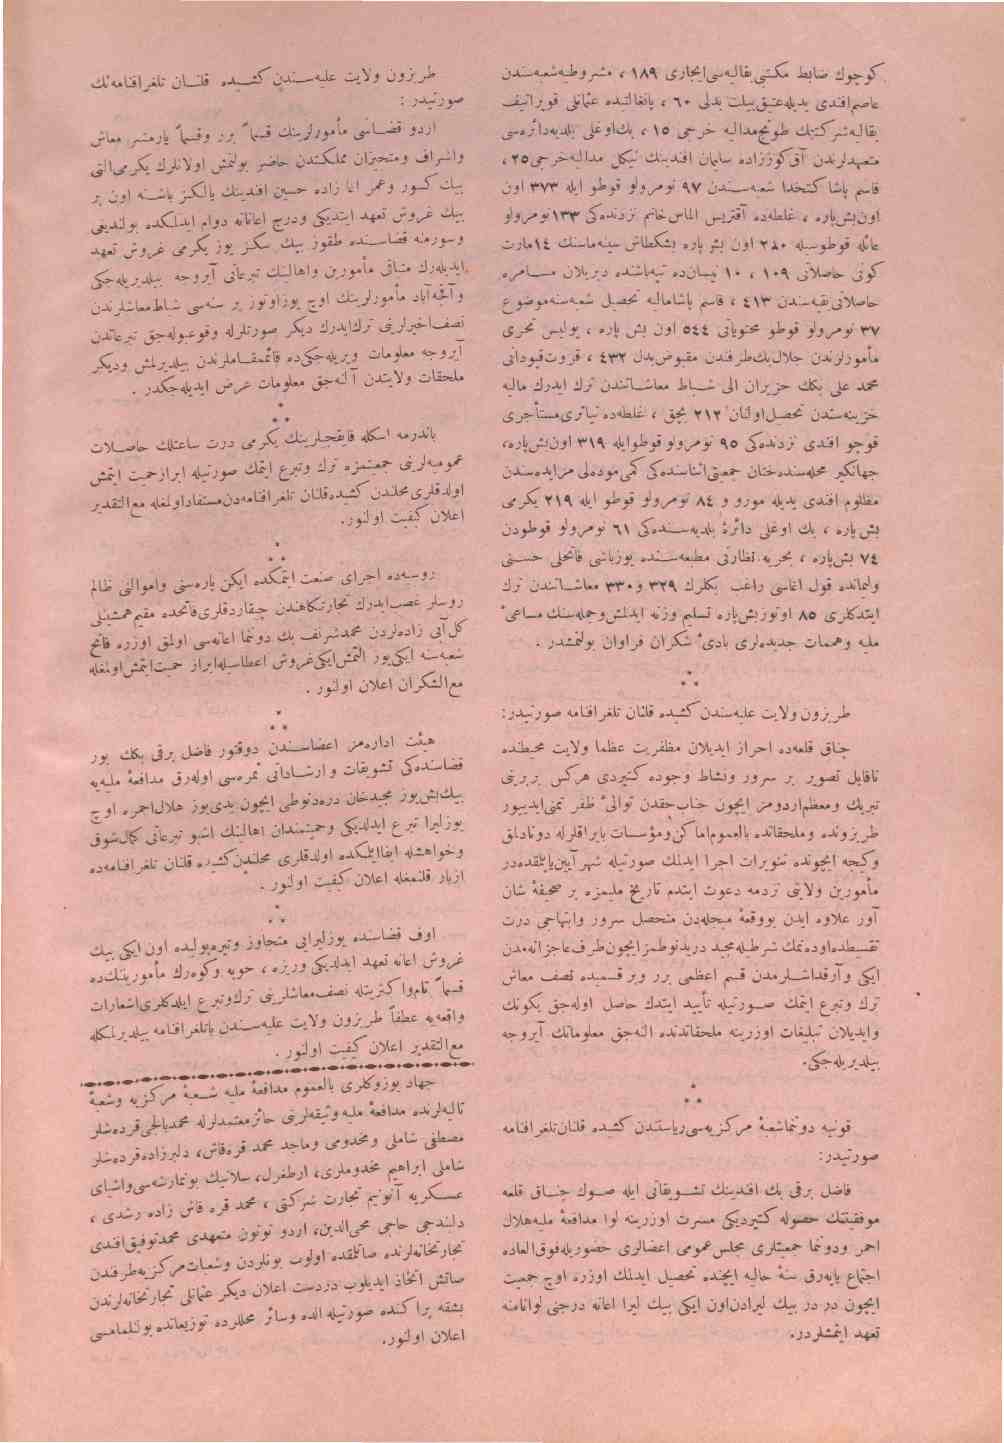 كوچوك ضابط مكتبی بقالیه‌سی ایجاری ١٨٩ ، مشروطیه شعبه‌سندن
عاصم افندی بدیله عتیق بیلت بدلی ٦٠ ، یانغالتنده عثمانلی قوپراتیف
بقالیه شركتنك طونج مدالیه خرجی ١٥ ، بك اوغلی بلدیه دائره‌سی
متعهدلرندن آق كوززاده سلیمان افندینك نیكل مدالیه خرجی ٢٥ ،
قاسم پاشا كتخدا شعبه‌سندن ٩٧ نومرولو قوطو ایله ٣٧٣ اون
اون بش پاره ، غلطه‌ده آقتریس الماس خانم نزدنده‌كی ١٣٣ نومرولو
عائله قوطوسیله ٢٨٠ اون بش پاره بشكطاش سینه‌ماسنك ١٤ مارت
كونی حاصلاتی ١٠٩ ، ١٠ نیسان‌ده تپه‌باشنده دیریلان مسامره
حاصلاتی بقیه‌سندن ٤١٣ ، قاسم پاشا مالیه تحصیل شعبه‌سنه موضوع
٣٧ نومرولو قوطو محتویاتی ٥٤٤ اون بش پاره ، پولیس تحری
مأمورلرندن جلال بك طرفندن مقبوض بدل ٤٣٢ ، قروت قپودانی
محمد علی بكك حزیران الی شباط معاشاتندن ترك ایدرك مالیه
خزینه‌سندن تحصیل اولنان ٢١٢ بچق ، غلطه‌ده تیاتری مستأجری
قوچو افندی نزدنده‌كی ٩٥ نومرولو قوطو ایله ٣١٩ اون بش پاره،
جهانكیر محله‌سنده ختان جمعیتی اثناسنده‌كی كمی موده‌لی مزایده‌سندن
مظلوم افندی یدیله مورو و ٨٤ نومرولو قوطو ایله ٢١٩ یكرمی
بش پاره ، بك اوغلی دائرۀ بلدیه‌سنده‌كی ٦١ نومرولو قوطودن
٧٤ بش پاره ، بحریه نظارتی مطبعه‌سنده یوزباشی فاتحلی حسنی
ولیمانده قول اغاسی راغب بكلرك ٣٢٩ و ٣٣٠ معاشاتندن ترك
ایتدكلری ٨٥ اوتوز بش پاره تسلیم وزنه ایدلمش وجمله‌سنك مساعئ
ملیه وهممات جدیده‌لری بادئ شكران فراوان بولنمشدر .
*
* *
طربزون ولایت علیه‌سندن كشیده قلنان تلغرافنامه صورتیدر:
چناق قلعه‌ده احراز ایدیلان مظفریت عظما ولایت محیطنده
ناقابل تصویر بر سرور ونشاط وجوده كتیردی هركس بربرینی
تبریك ومعظم اردومز ایچون جناب حقدن توالئ ظفر تمنی ایدییور
طربزونده وملحقاتده بالعموم اماكن ومؤسسات بایراقلرله دوناداق
وكیجه ایچونده تنویرات اجرا ایدلمك صورتیله شهر آیین یاپلمقده‌در
مأمورین ولایتی تردمه دعوت ایتدم تاریخ ملیمزه بر صحیفۀ شان
آور علاوه ایدن بووقعۀ مبجله‌دن متحصل سرور وابتهاجی درت
تقسیطده اوده‌نمك شرطیله مجید دریدنوطمز ایچون طرف عاجزانه‌مدن
ایكی وآرقداشلرمدن قسم اعظمی برر وبر قسمیده نصف معاش
ترك وتبرع ایتمك صورتیله تأیید ایتدك حاصل اوله‌جق یكونك
وایدیلان تبلیغات اوزرینه ملحقاتدنده النه‌جق معلوماتك آیروجه
بیلدیریله‌جكی.
*
* *
قونیه دونما شعبۀ مركزیه‌سی ریاستندن كشیده قلنان تلغرافنامه
صورتیدر:
فاضل برقی بك افندینك تشویقاتی ایله صوك چناق قلعه
موفقیتنك حصوله كتیردیكی مسرت اوزرینه لوا مدافعۀ ملیه هلال
احمر ودونما جمعیتلری مجلس عمومی اعضالری حضوریله فوق العاده
اجتماع یاپه‌رق سنۀ حالیه ایچنده تحصیل ایدلمك اوزره اوچ جمعیت
ایچون دردر بیك لیرادن اون ایكی بیك لیرا اعانه درجی لوا نامنه
تعهد ایتمشلردر.
طربزون ولایت علیه‌سندن كشیده قلنان تلغرافنامه‌نك
صورتیدر :
اردو قضاسی مأمورلرینك قسماً برر وقسماً یارمشر معاش
واشراف ومتحیزان مملكتدن حاضر بولنمش اولانلرك یكرمی التی
بیك كسور وعمر اغا زاده حسین افندینك یالكز باشنه اون بر
بیك غروش تعهد ایتدیكی ودرج اعاناته دوام ایدلكده بولندیغی
وسورمنه قضاسنده طقوز بیك سكز یوز یكرمی غروش تعهد
ایدیله‌رك متباقی مأمورین واهالینك تبرعاتی آیروجه بیلدیریله‌جكی
وآقچه‌آباد مأمورلرینك اوچ یوز اوتوز بر سنه‌سی شباط معاشلرندن
نصف اخیرلرینی ترك ایدرك دیكر صورتلرله وقوعبوله‌جق تبرعاتدن
آیروجه معلومات ویریله‌جكی‌ده قائممقاملرندن بیلدیریلمش ودیكر
ملحقات ولایتدن آلنه‌جق معلومات عرض ایدیله‌جكدر .
*
* *
باندرمه اسكله قایقجیلرینك یكرمی درت ساعتلك حاصلات
عمومیه‌لرینی جمعیتمزه ترك وتبرع ایتمك صورتیله ابراز حمیت ایتمش
اولدقلری محلندن كشیده قلنان تلغرافنامه‌دن مستفاد اولمغله مع التقدیر
اعلان كیفیت اولنور.
*
* *
روسیه‌ده اجرای صنعت ایتمكده ایكن پاره‌سنی واموالنی ظالم
روسلر غصب ایدرك تجارتكاهندن چیقاردقلری فاتحده مقیم همشینلی
كل آبی زاده‌لردن محمد شریف بك دونما اعانه‌سی اولمق اوزره فاتح
شعبه‌سنه ایكی یوز التمش ایكی غروش اعطاسیله ابراز حمیت ایتمش اولمغله
مع الشكران اعلان اولنور .
*
* *
هیئت اداره‌مز اعضاسندن دوقتور فاضل برقی بكك بور
قضاسنده‌كی تشویقات و ارشاداتی ثمره‌سی اوله‌رق مدافعۀ ملیه‌یه
بیك بش یوز مجیدخان دره‌دنوطی ایچون یدی یوز هلال احمره اوچ
یوز لیرا تبرع ایدلدیكی وحمیتمندان اهالینك اشبو تبرعاتی كمال شوق
وخواهشله ایفا ایلمكده اولدقلری محلندن كشیده قلنان تلغرافنامه‌ده
ازبار قلنمغله اعلان كیفیت اولنور .
*
* *
اوف قضاسنده یوز لیرایی متجاوز وتیره‌بولیده اون ایكی بیك
غروش اعانه تعهد ایدلدیكی وریزه ، خوپه وكوه‌رك مأمورینك‌ده
قسماً تام واكثریتله نصف معاشلرینی ترك وتبرع ایلدكلری اشعارات
واقعه‌یه عطفاً طربزون ولایت علیه‌سندن باتلغرافنامه بیلدیرلمكله
مع التقدیر اعلان كیفیت اولنور .
جهاد یوزوكلری بالعموم مدافعۀ ملیه شعبۀ مركزیه وشعبۀ
تالیه‌لرنده مدافعۀ ملیه وثیقه‌لرینی حائز معتمدلرله محمد بالجی قرده‌شلر
مصطفی شاملی ومخدومی وماجد محمد قره‌قاش، دلبرزاده قرده‌شلر
شاملی ابراهیم مخدوملری، ارطغرل، سلانیك بونمارشه‌سی واشیای
عسكریه آنونیم تجارت شركتی ، محمد قره قاش زاده رشدی ،
دلبندجی حاجی محی الدین، اردو توتون متعهدی محمد توفیق افندی
تجارتخانه‌لرنده صاتلمقده اولوب بونلردن وشعبات مركزیه طرفندن
صاتش اتخاذ ایدیلوب دردست اعلان دیكر عثمانلی تجارتخانه‌لرندن
بشقه پراكنده صورتیله الده وسائر محللرده توزیعاتده بولنلمامسی
اعلان اولنور.